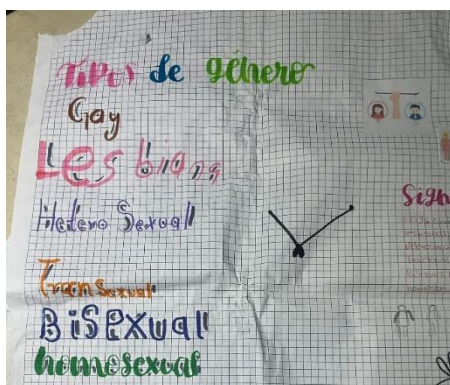 Tipos de género
Gay
Lesbiana
Hetero Sexual
Tran Sexual
BiSEXUal
homosexual
Sign